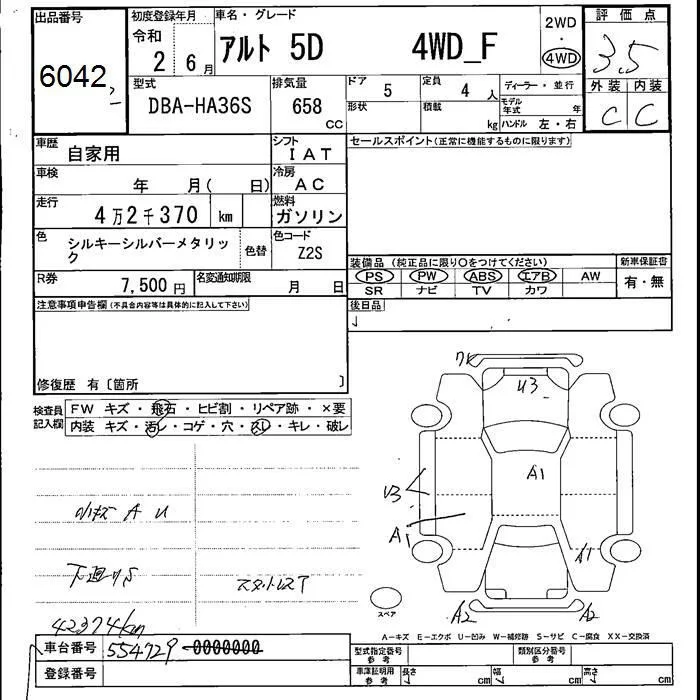 出品番号
6042
初度登録年月
令和
2 6月
車名・グレード
アルト 5D 4WD_F
2WD
・
4WD
評価点
3.5
外装 内装
C C
型式
DBA-HA36S
排気量
658
CC
ドア
5
定員
4 人
ディーラー・並行
形状
積載
kg
モデル年式
年
ハンドル 左・右
車歴
自家用
シフト
IAT
セールスポイント(正常に機能するものに限ります)
車検
年 月( 日)
冷房
AC
走行
4万2千370 km
燃料
ガソリン
色
シルキーシルバーメタリック
色替
色コード
Z2S
R券
7,500円
名変通知期限
月 日
装備品(純正品に限り○をつけてください)
PS PW ABS エアB AW
SR ナビ TV カワ
新車保証書
有・無
注意事項申告欄(不具合内容等は具体的に記入して下さい)
後日品
修復歴 有〔箇所 〕
検査員記入欄
FW キズ・飛石・ヒビ割・リペア跡・×要
内装 キズ・汚レ・コゲ・穴・スレ・キレ・破レ
小キズ A U
下廻りS
スタットレスT
42374km
U3
A1
U3
A1
A1
A2
A2
スペア
A-キズ E-エクボ U-凹み W-補修跡 S-サビ C-腐食 XX-交換済
車台番号
554729 0000000
登録番号
型式指定番号
参考
類別区分番号
参考
車庫証明用
参考
長さ
cm
幅
cm
高さ
cm